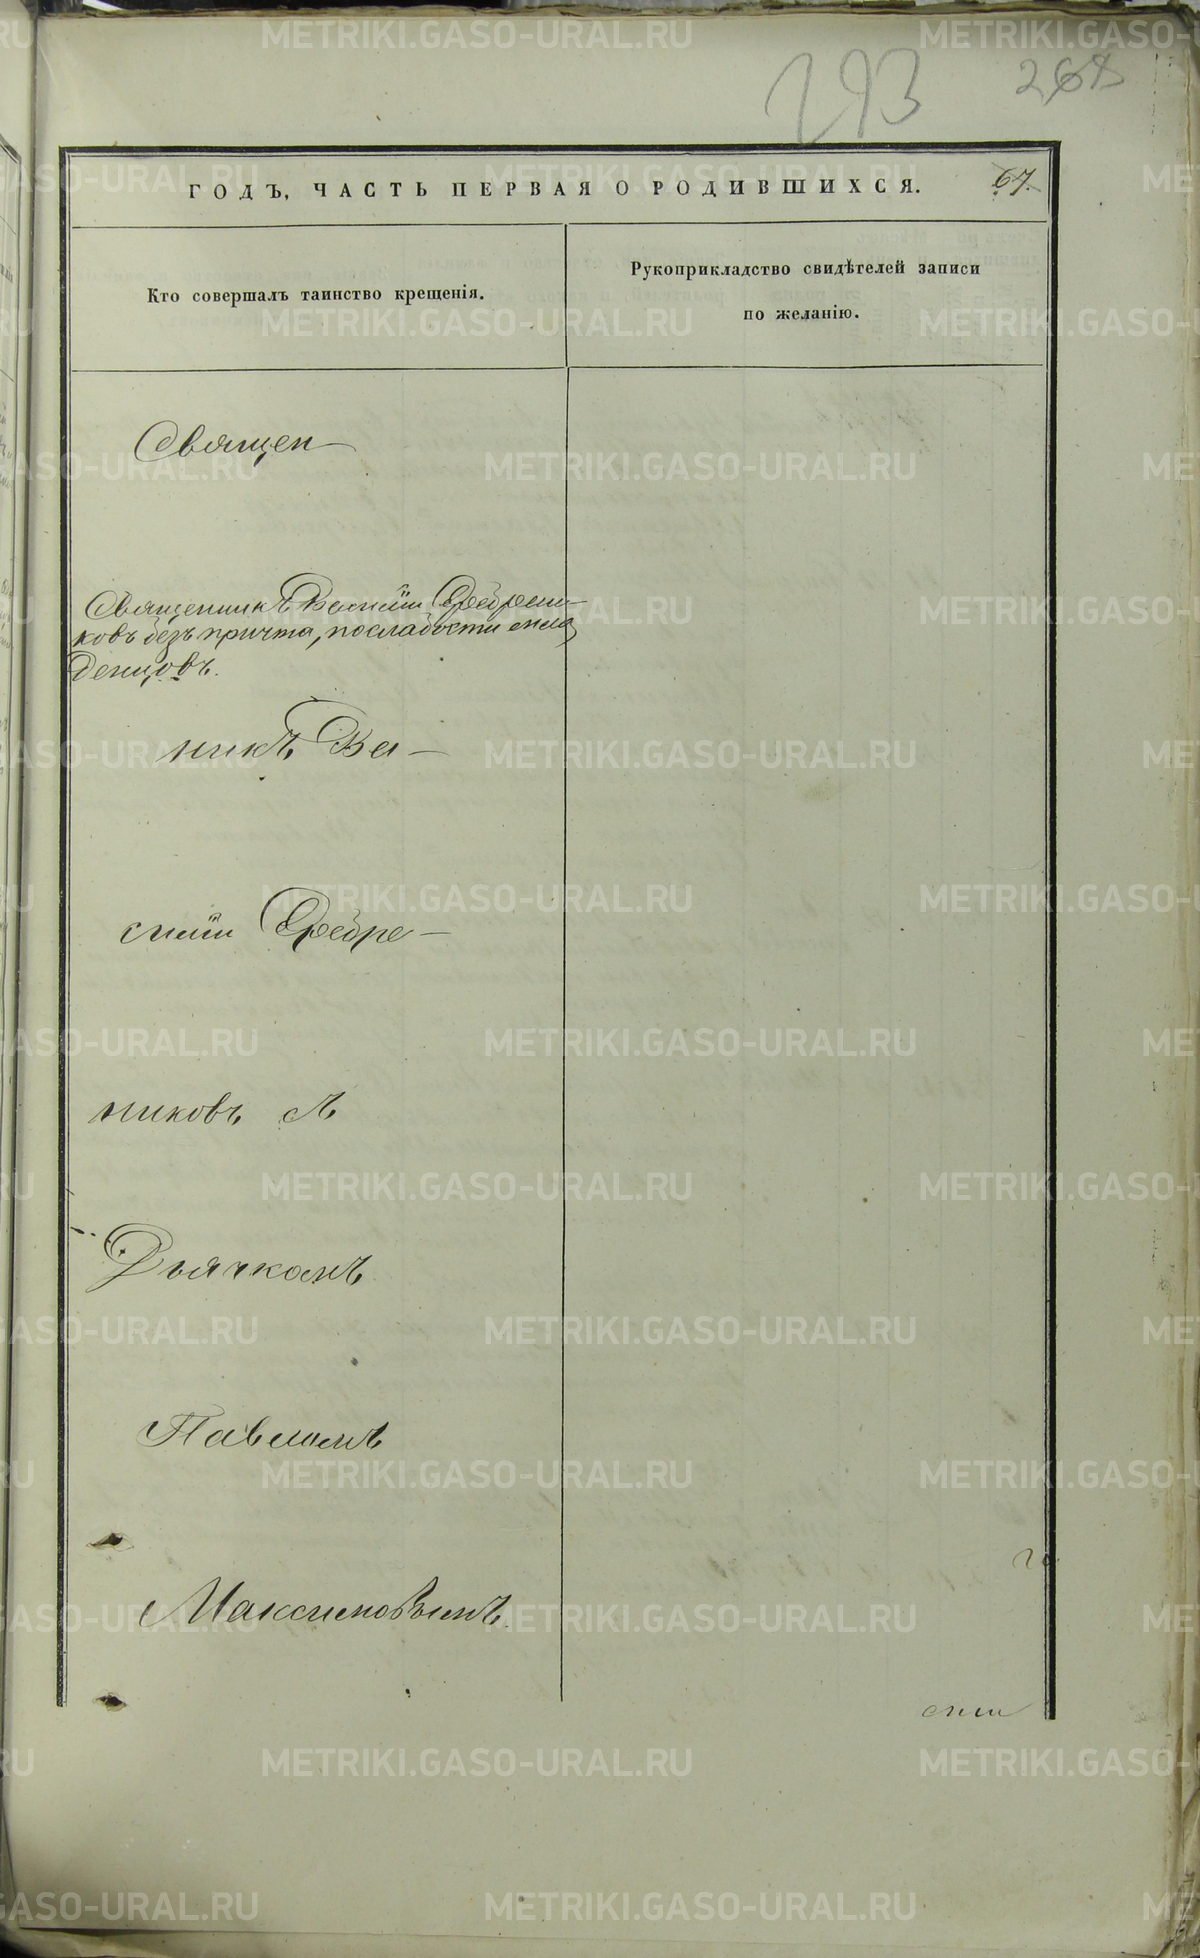 293 268
ГОДЪ, ЧАСТЬ ПЕРВАЯ О РОДИВШИХСЯ. 67.
Кто совершалъ таинство крещенія.
Рукоприкладство свидѣтелей записи
по желанію.
Священ-
Священникъ Василій Серебрени-
ковъ безъ причта, по слабости мла
денцовъ.
никъ Ва-
силій Серебре-
никовъ съ
Дьячкомъ
Павломъ
Максимовымъ.
METRIKI.GASO-URAL.RU